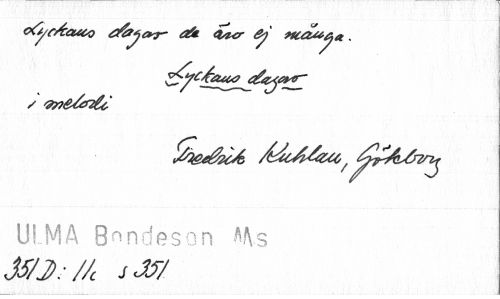 Lyckans dagar de äro ej många.
Lyckans dagar
i melodi
Fredrik Kuhlau, Göteborg
ULMA Bondeson Ms
351 D: 11c s 351